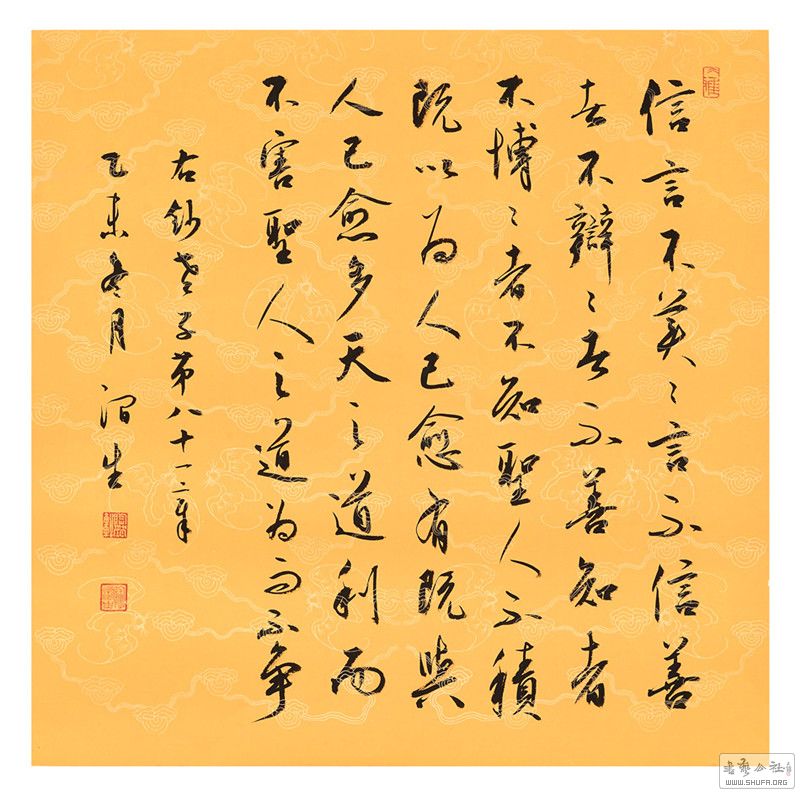 信言不美〻言不信善
者不辯〻者不善知者
不博〻者不知聖人不積
既以為人己愈有既與
人己愈多天之道利而
不害聖人之道為而不爭
右鈔老子第八十一章
乙未冬月
書藝公社
WWW.SHUFA.ORG